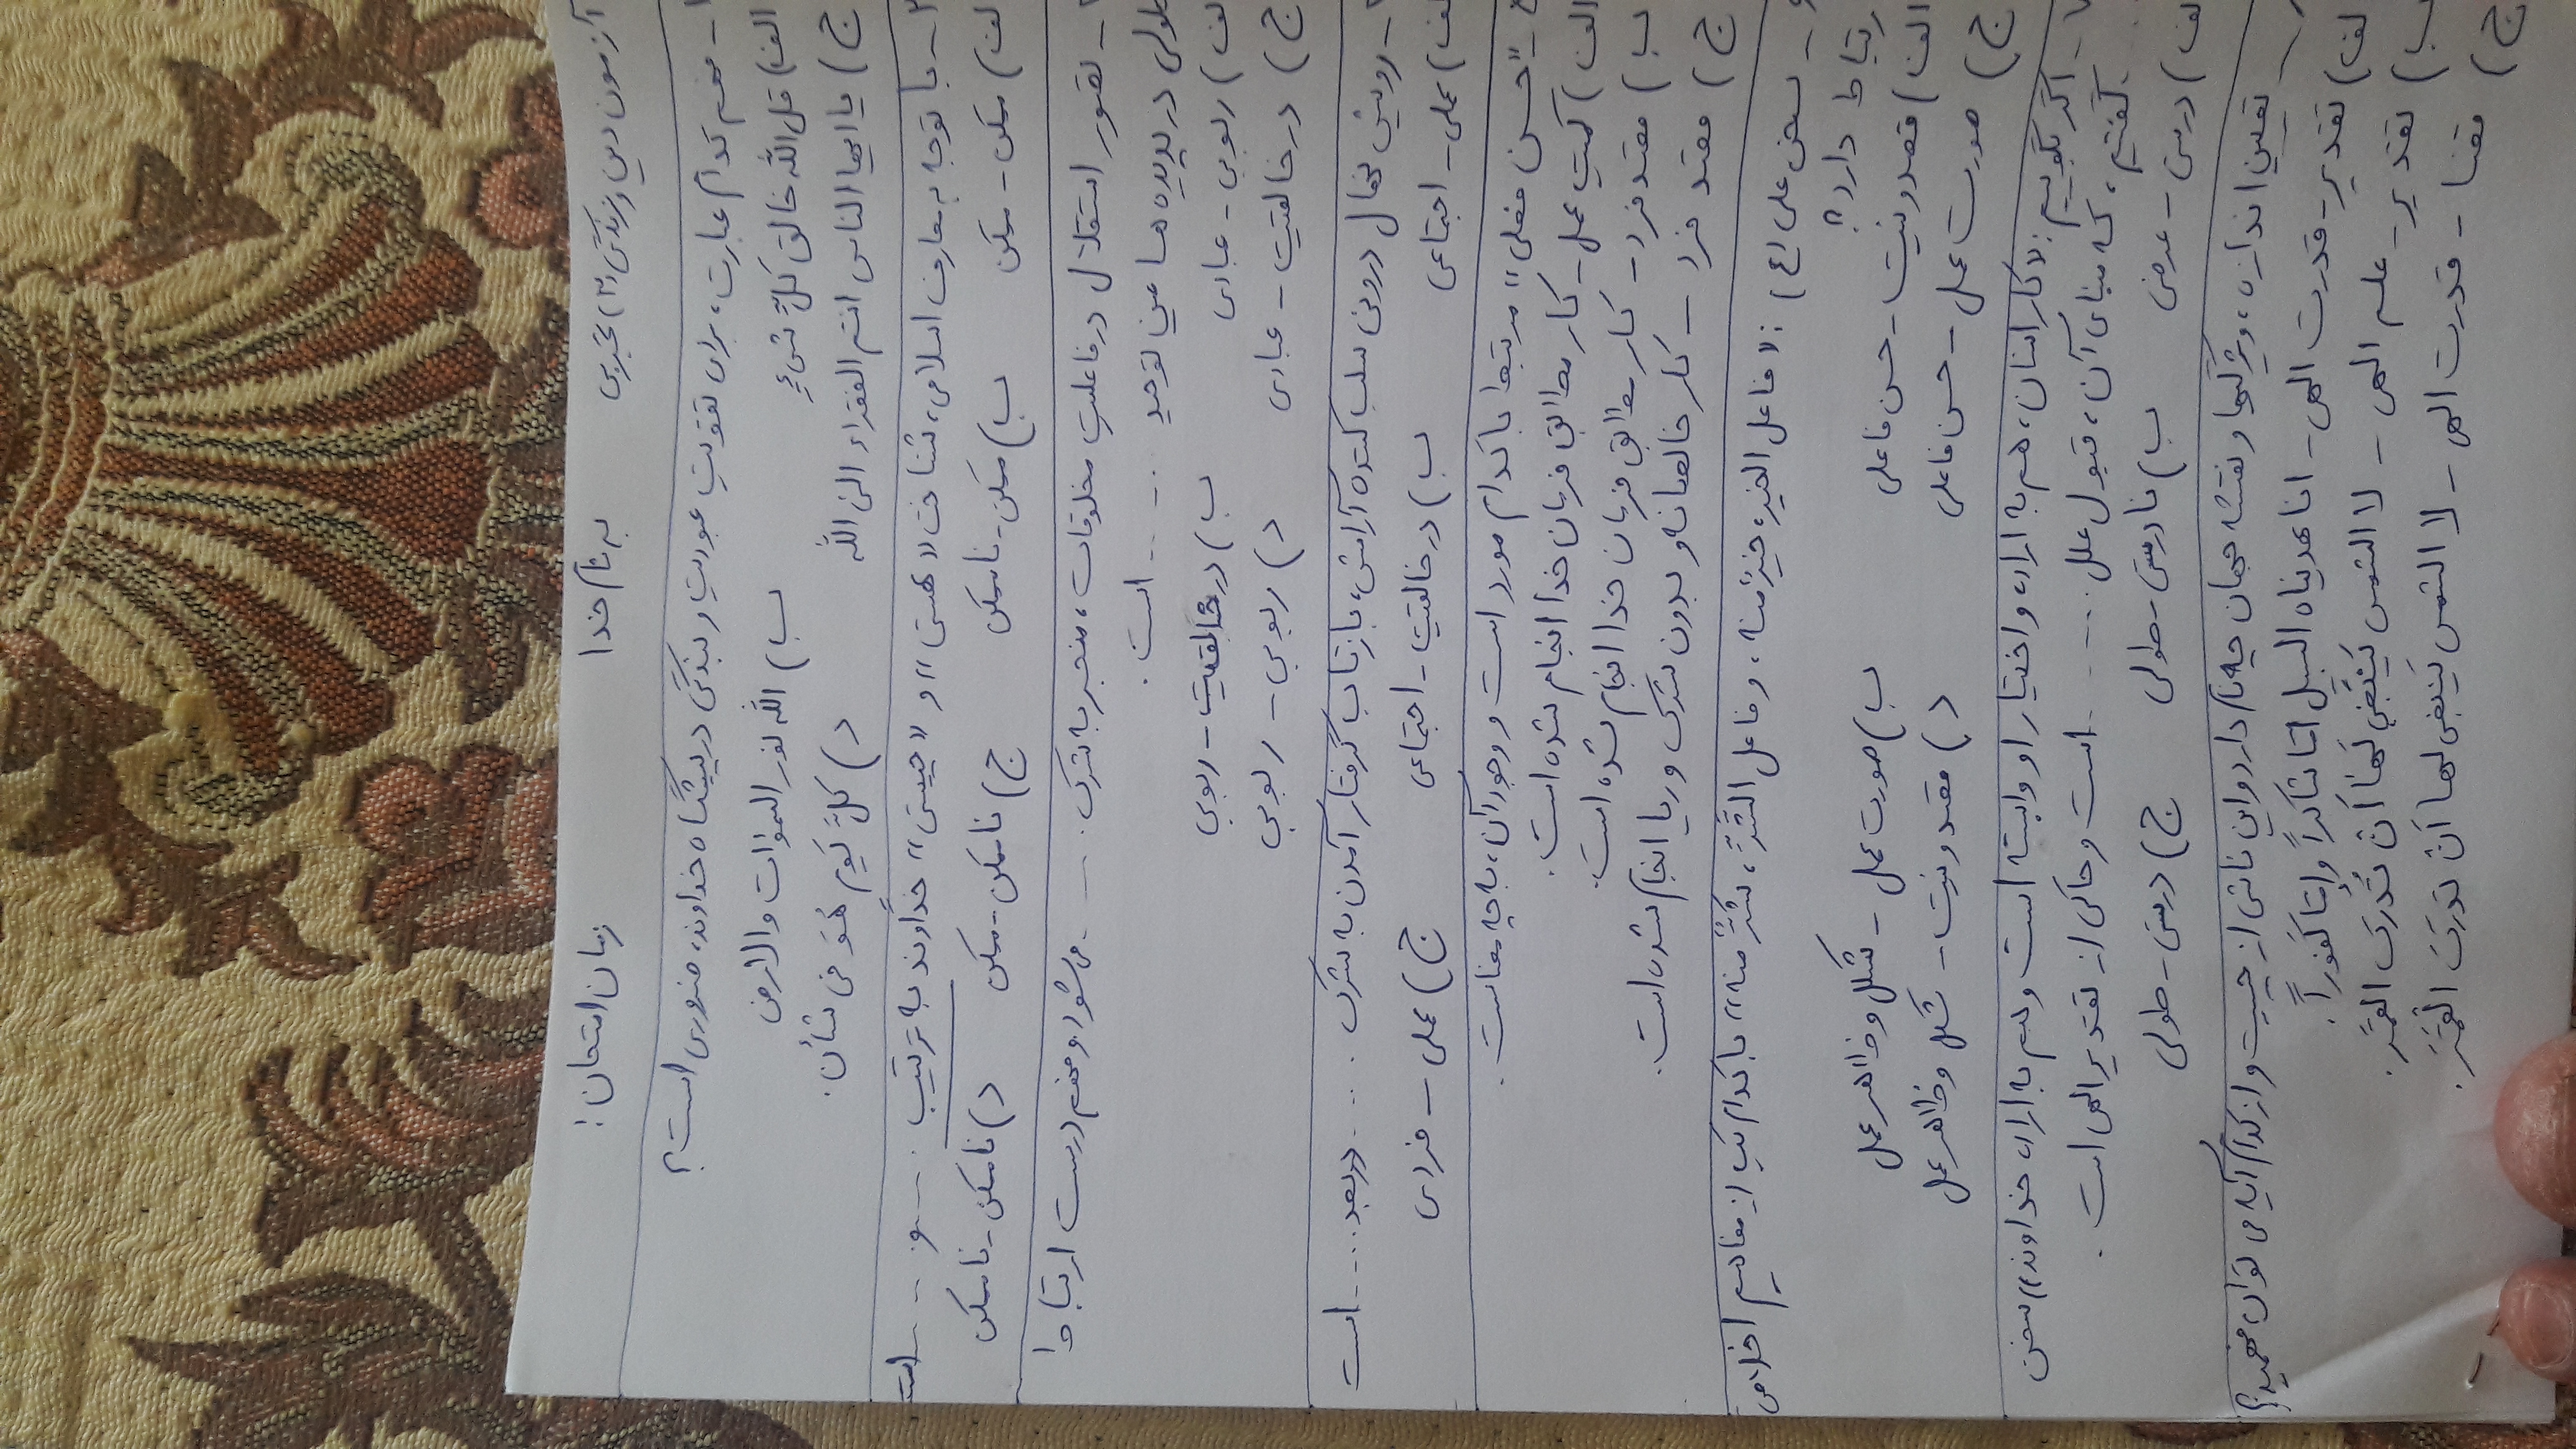 آزمون دین و زندگی (۳) تجربی به نام خدا زمان امتحان:
- مفهوم کدام عبارت، برای تقویت عبودیت و بندگی در پیشگاه خداوند، ضروری است؟
الف) قل الله خالق کلّ شیءٍ ب) الله نور السموات والارض
ج) یا ایها الناس انتم الفقراء الی الله د) کلَّ یَومٍ هُوَ فی شأن.
۲- با توجه به معارف اسلامی، شناخت «هستی» و «چیستی» خداوند به ترتیب ..... و ..... است
لف) ممکن - ممکن ب) ممکن - ناممکن ج) ناممکن - ممکن د) ناممکن - ناممکن
- تصور استقلال در فاعلیت مخلوقات، منجر به شرک ..... می‌شود و مفهوم درست ارتباط
طولی در پدیده ها عین توحید ..... است.
لف) ربوبی - عبادی ب) در خالقیت - ربوبی
ج) در خالقیت - عبادی د) ربوبی - ربوبی
- رویش نهال درونی سلب کننده آرامش، بازتاب گرفتار آمدن به شرک ..... در بعد ..... است
لف) عملی - اجتماعی ب) در خالقیت - اجتماعی ج) عملی - فردی
۵- «حسن فعلی» مرتبط با کدام مورد است و وجود آن، به چه معناست.
الف) کمیت عمل - کار مطابق فرمان خدا انجام شده است.
ب) مقصد فرد - کار مطابق فرمان خدا انجام شده است.
ج) مقصد فرد - کار خالصانه و بدون شرک و ریا انجام شده است.
۶- سخن علی (ع): «فاعل الخیر، خیرٌ منه، و فاعل الشَّرِّ، شَرٌّ منه» با کدام یک از مفاهیم اخلاص
رتباط دارد؟
الف) قصد و نیت - حسن فاعلی ب) صورت عمل - شکل و ظاهر عمل
ج) صورت عمل - حسن فاعلی د) مقصد و نیت - شکل و ظاهر عمل
۷- اگر بگوییم: «کار انسان، هم به اراده و اختیار او وابسته است و هم به اراده خداوند» سخن
..... گفتیم، که مبنای آن، قبول علل ..... است و حاکی از تقدیر الهی است.
لف) درستی - عرضی ب) نادرستی - طولی ج) درستی - طولی
- تعیین اندازه، ویژگیها و نقشه جهان چه نام دارد و این ناشی از چیست و از کدام آیه می توان فهمید؟
لف) تقدیر - قدرت الهی - انا هدیناه السبیل امّا شاکراً و اِمّا کَفوراً.
ب) تقدیر - علم الهی - لا الشمس یَنبَغی لَها اَنْ تُدرِکَ القَمَر.
ج) قضا - قدرت الهی - لا الشمس یَنبغی لها اَنْ تدرَکَ الْقَمَرَ.